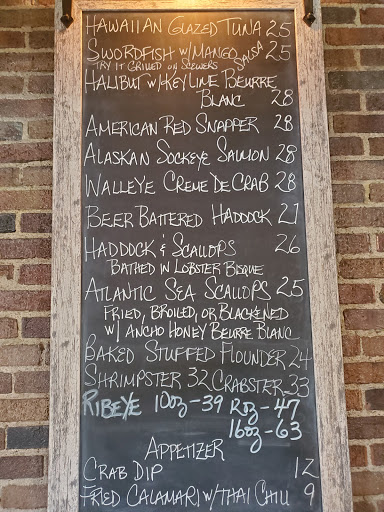 HAWAIIAN GLAZED TUNA 25
SWORDFISH W/MANGO SALSA 25
TRY IT GRILLED ON SKEWERS
HALIBUT W/KEY LIME BEURRE
BLANC 28
AMERICAN RED SNAPPER 28
ALASKAN SOCKEYE SALMON 28
WALLEYE CREME DE CRAB 28
BEER BATTERED HADDOCK 21
HADDOCK & SCALLOPS 26
BATHED IN LOBSTER BISQUE
ATLANTIC SEA SCALLOPS 25
FRIED, BROILED, OR BLACKENED
W/ ANCHO HONEY BEURRE BLANC
BAKED STUFFED FLOUNDER 24
SHRIMPSTER 32 CRABSTER 33
RIBEYE 10oz-39 12oz-47
16oz-63
APPETIZER
CRAB DIP 12
FRIED CALAMARI W/THAI CHILI 9